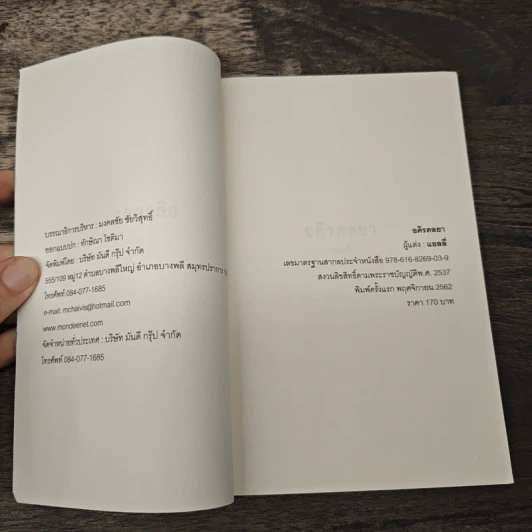 บรรณาธิการบริหาร : มงคลชัย ชัยวิสุทธิ์
ออกแบบปก : ทักษิณา โชติมา
จัดพิมพ์โดย : บริษัท มันดี กรุ๊ป จำกัด
555/109 หมู่12 ตำบลบางพลีใหญ่ อำเภอบางพลี สมุทรปราการ
โทรศัพท์ 084-077-1685
e-mail: mchaivis@hotmail.com
www.mondeenet.com
จัดจำหน่ายทั่วประเทศ : บริษัท มันดี กรุ๊ป จำกัด
โทรศัพท์ 084-077-1685
อคิรตลยา
ผู้แต่ง : แอลลี่
เลขมาตรฐานสากลประจำหนังสือ 978-616-8269-03-9
สงวนลิขสิทธิ์ตามพระราชบัญญัติพ.ศ. 2537
พิมพ์ครั้งแรก พฤศจิกายน 2562
ราคา 170 บาท